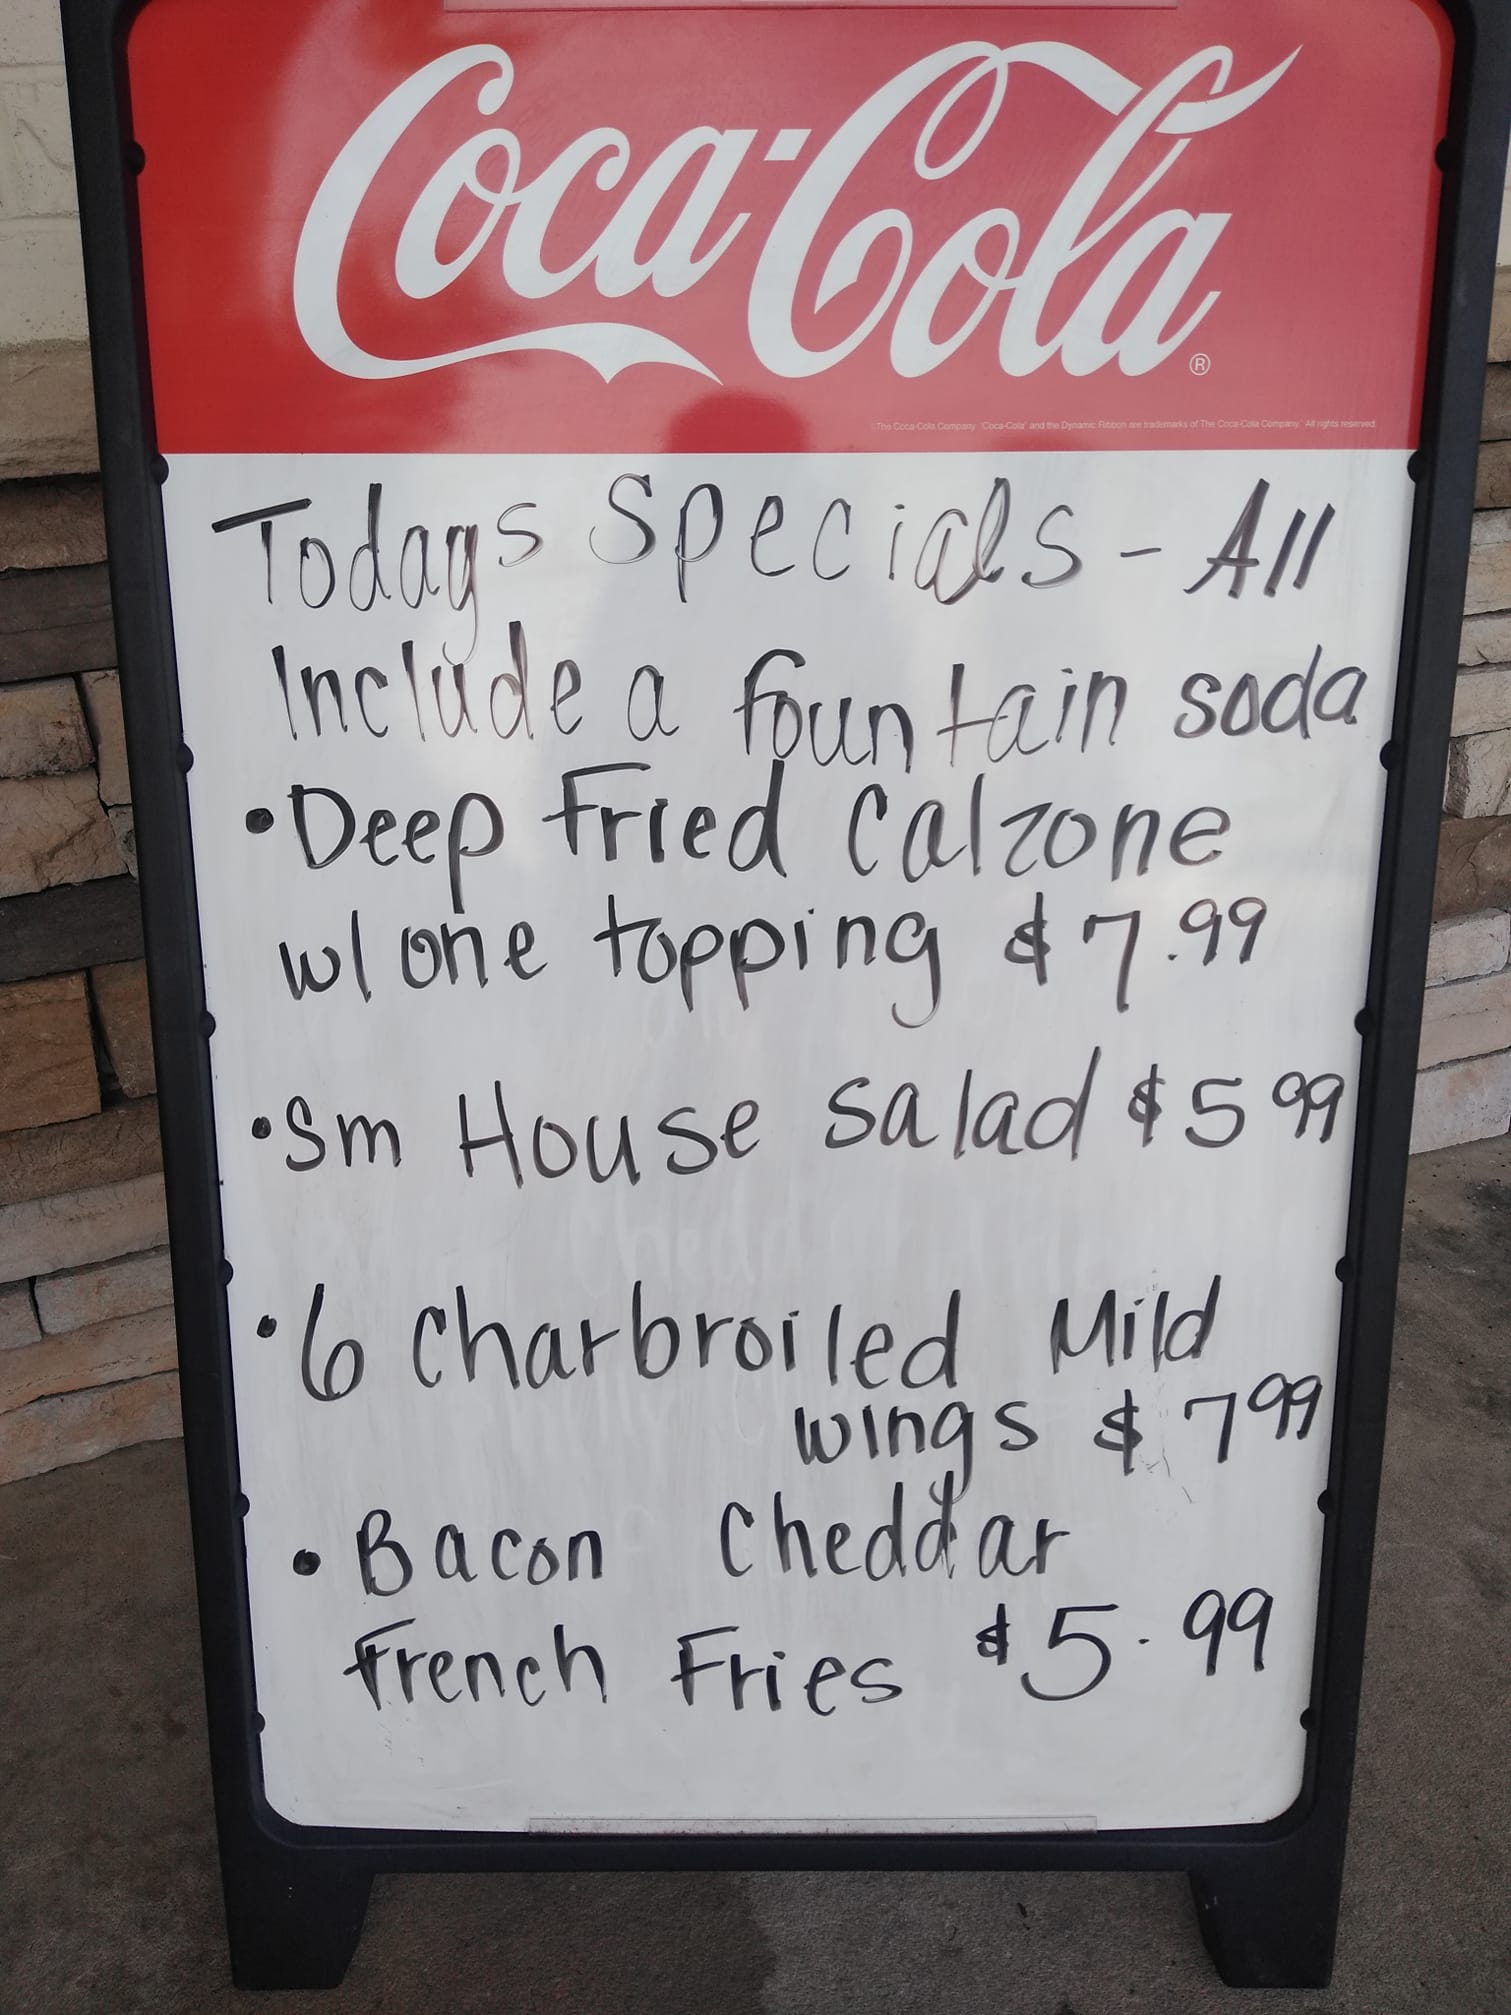 Coca-Cola
®
©The Coca-Cola Company. "Coca-Cola" and the Dynamic Ribbon are trademarks of The Coca-Cola Company. All rights reserved.
Todays Specials - All
Include a fountain soda
• Deep Fried Calzone
w/ one topping $7.99
• Sm House Salad $5 99
• 6 Charbroiled Mild
wings $7 99
• Bacon Cheddar
French Fries $5.99